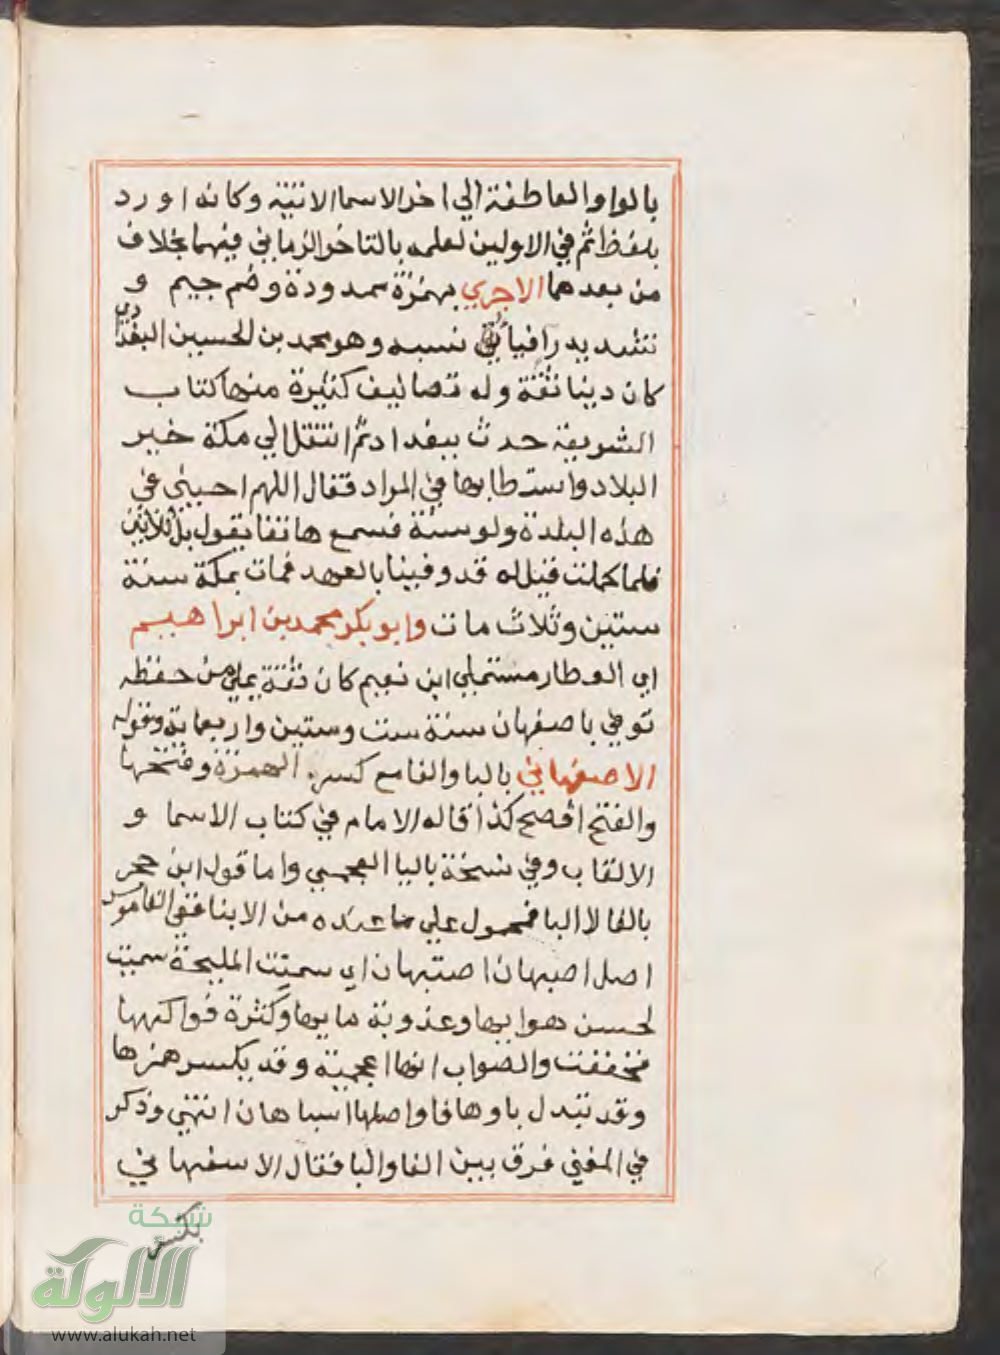 بالواو العاطفة الي اخر الاسما الاتية وكانه اورد
بلفظ ثم في الاولين لعلمه بالتاخر الزماني فيهما بخلاف
من بعدهما الاجري بهمزة ممدودة وضم جيم و
تشديد را فيا نسبه وهو محمد بن الحسين البغدادي
كان دينا ثقة وله تصانيف كثيرة منها كتاب
الشريعة حدث ببغداد ثم انتقل الي مكة خير
البلاد واستطابها في المراد فقال اللهم احييني في
هذه البلدة ولو سنة فسمع هاتفا يقول بل ثلاثين
فلما كملت قيل له قد وفينا بالعهد فمات بمكة سنة
ستين وثلاث مات وابو بكر محمد بن ابراهيم
اي العطار مستملي ابي نعيم كان ثقة يملي من حفظه
توفي باصفهان سنة ست وستين واربعماية وقوله
الاصفهاني بالبا والفا مع كسر الهمزة وفتحها
والفتح افصح كذا قاله الامام في كتاب الاسما و
الالقاب وفي نسخة باليا العجمي واما قول ابن حجر
بالفا لا البا فمحمول علي ما عنده من الابنا ففي القاموس
اصل اصبهان اصتبهان اي سمتت المليحة سميت
لحسن هوايها وعذوبة مايها وكثرة فواكهها
فخففت والصواب انها اعجمية وقد يكسر همزها
وقد تبدل باوها فا واصلها اسباهان انتهي وذكر
في المغني فرق بين الفا والبا فقال الاسفهاني
بكسر
شبكة
الألوكة
www.alukah.net